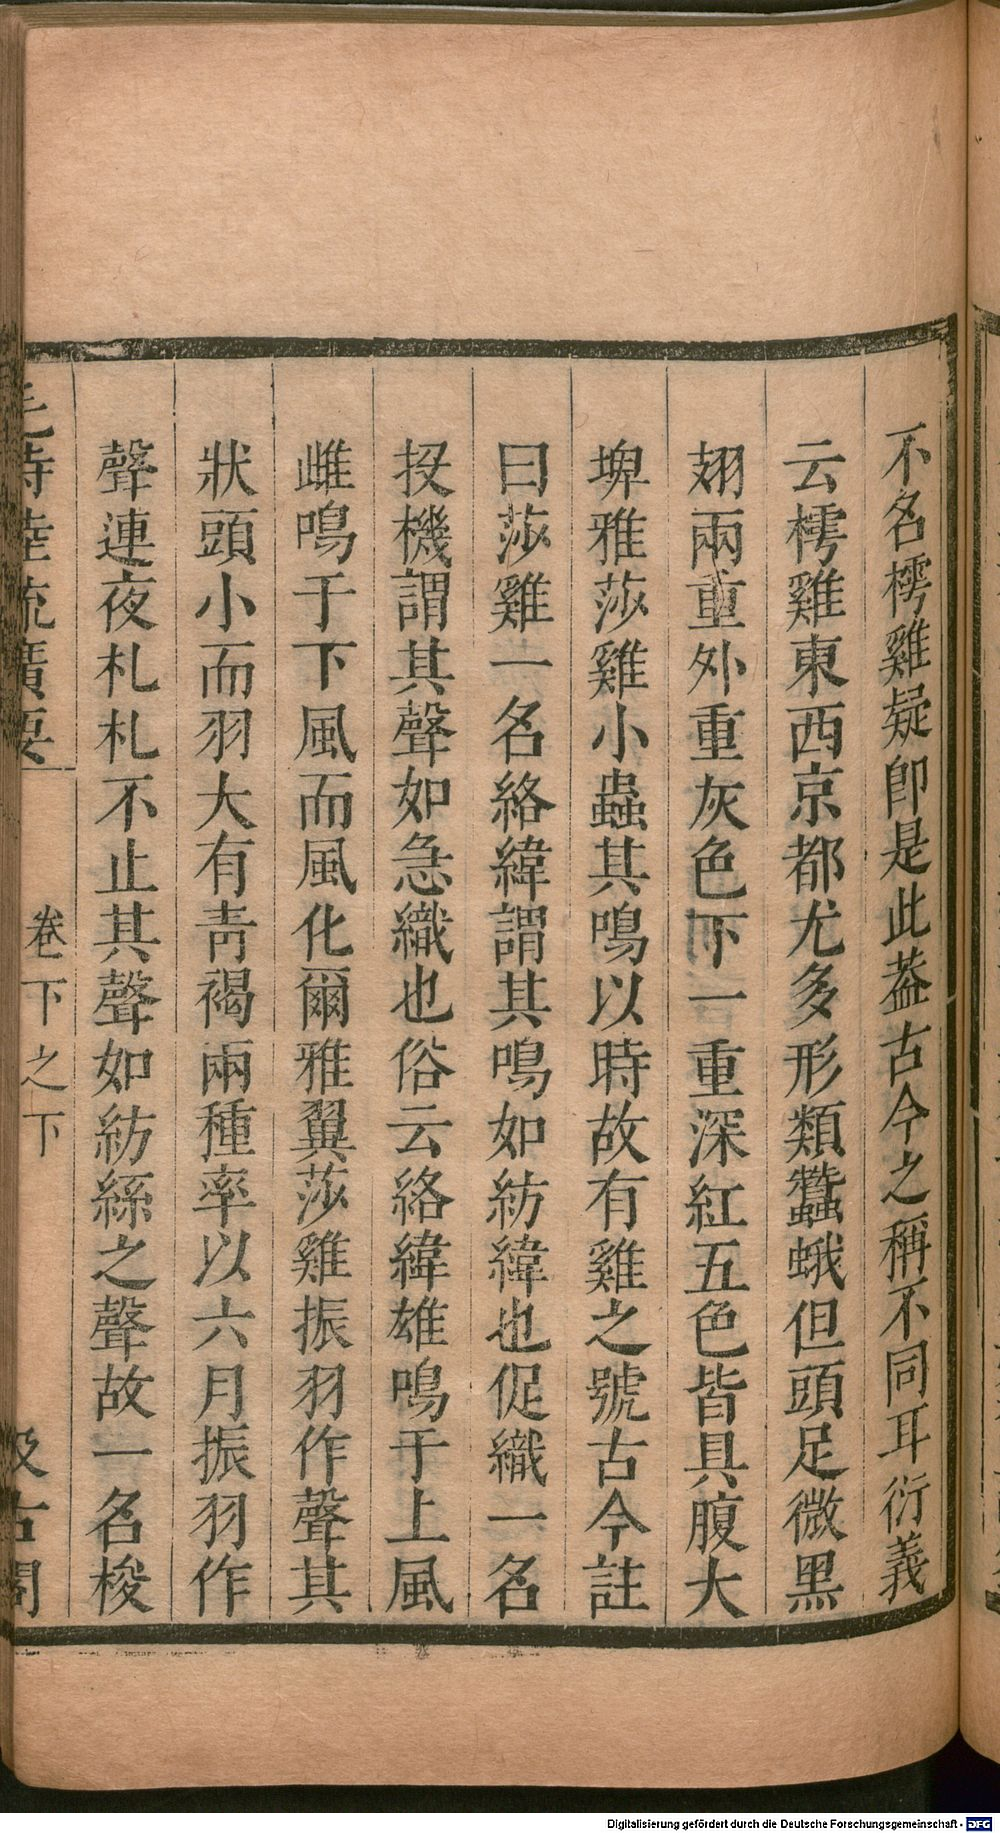 不名樗雞疑卽是此葢古今之稱不同耳衍義
云樗雞東西京都尤多形類蠶蛾但頭足微黑
翅兩重外重灰色下一重深紅五色皆具腹大
埤雅莎雞小蟲其鳴以時故有雞之號古今註
曰莎雞一名絡緯謂其鳴如紡緯也促織一名
投機謂其聲如急織也俗云絡緯雄鳴于上風
雌鳴于下風而風化爾雅翼莎雞振羽作聲其
狀頭小而羽大有靑褐兩種率以六月振羽作
聲連夜札札不止其聲如紡絲之聲故一名梭
毛詩陸疏廣要
卷下之下
汲古閣
Digitalisierung gefördert durch die Deutsche Forschungsgemeinschaft - DFG